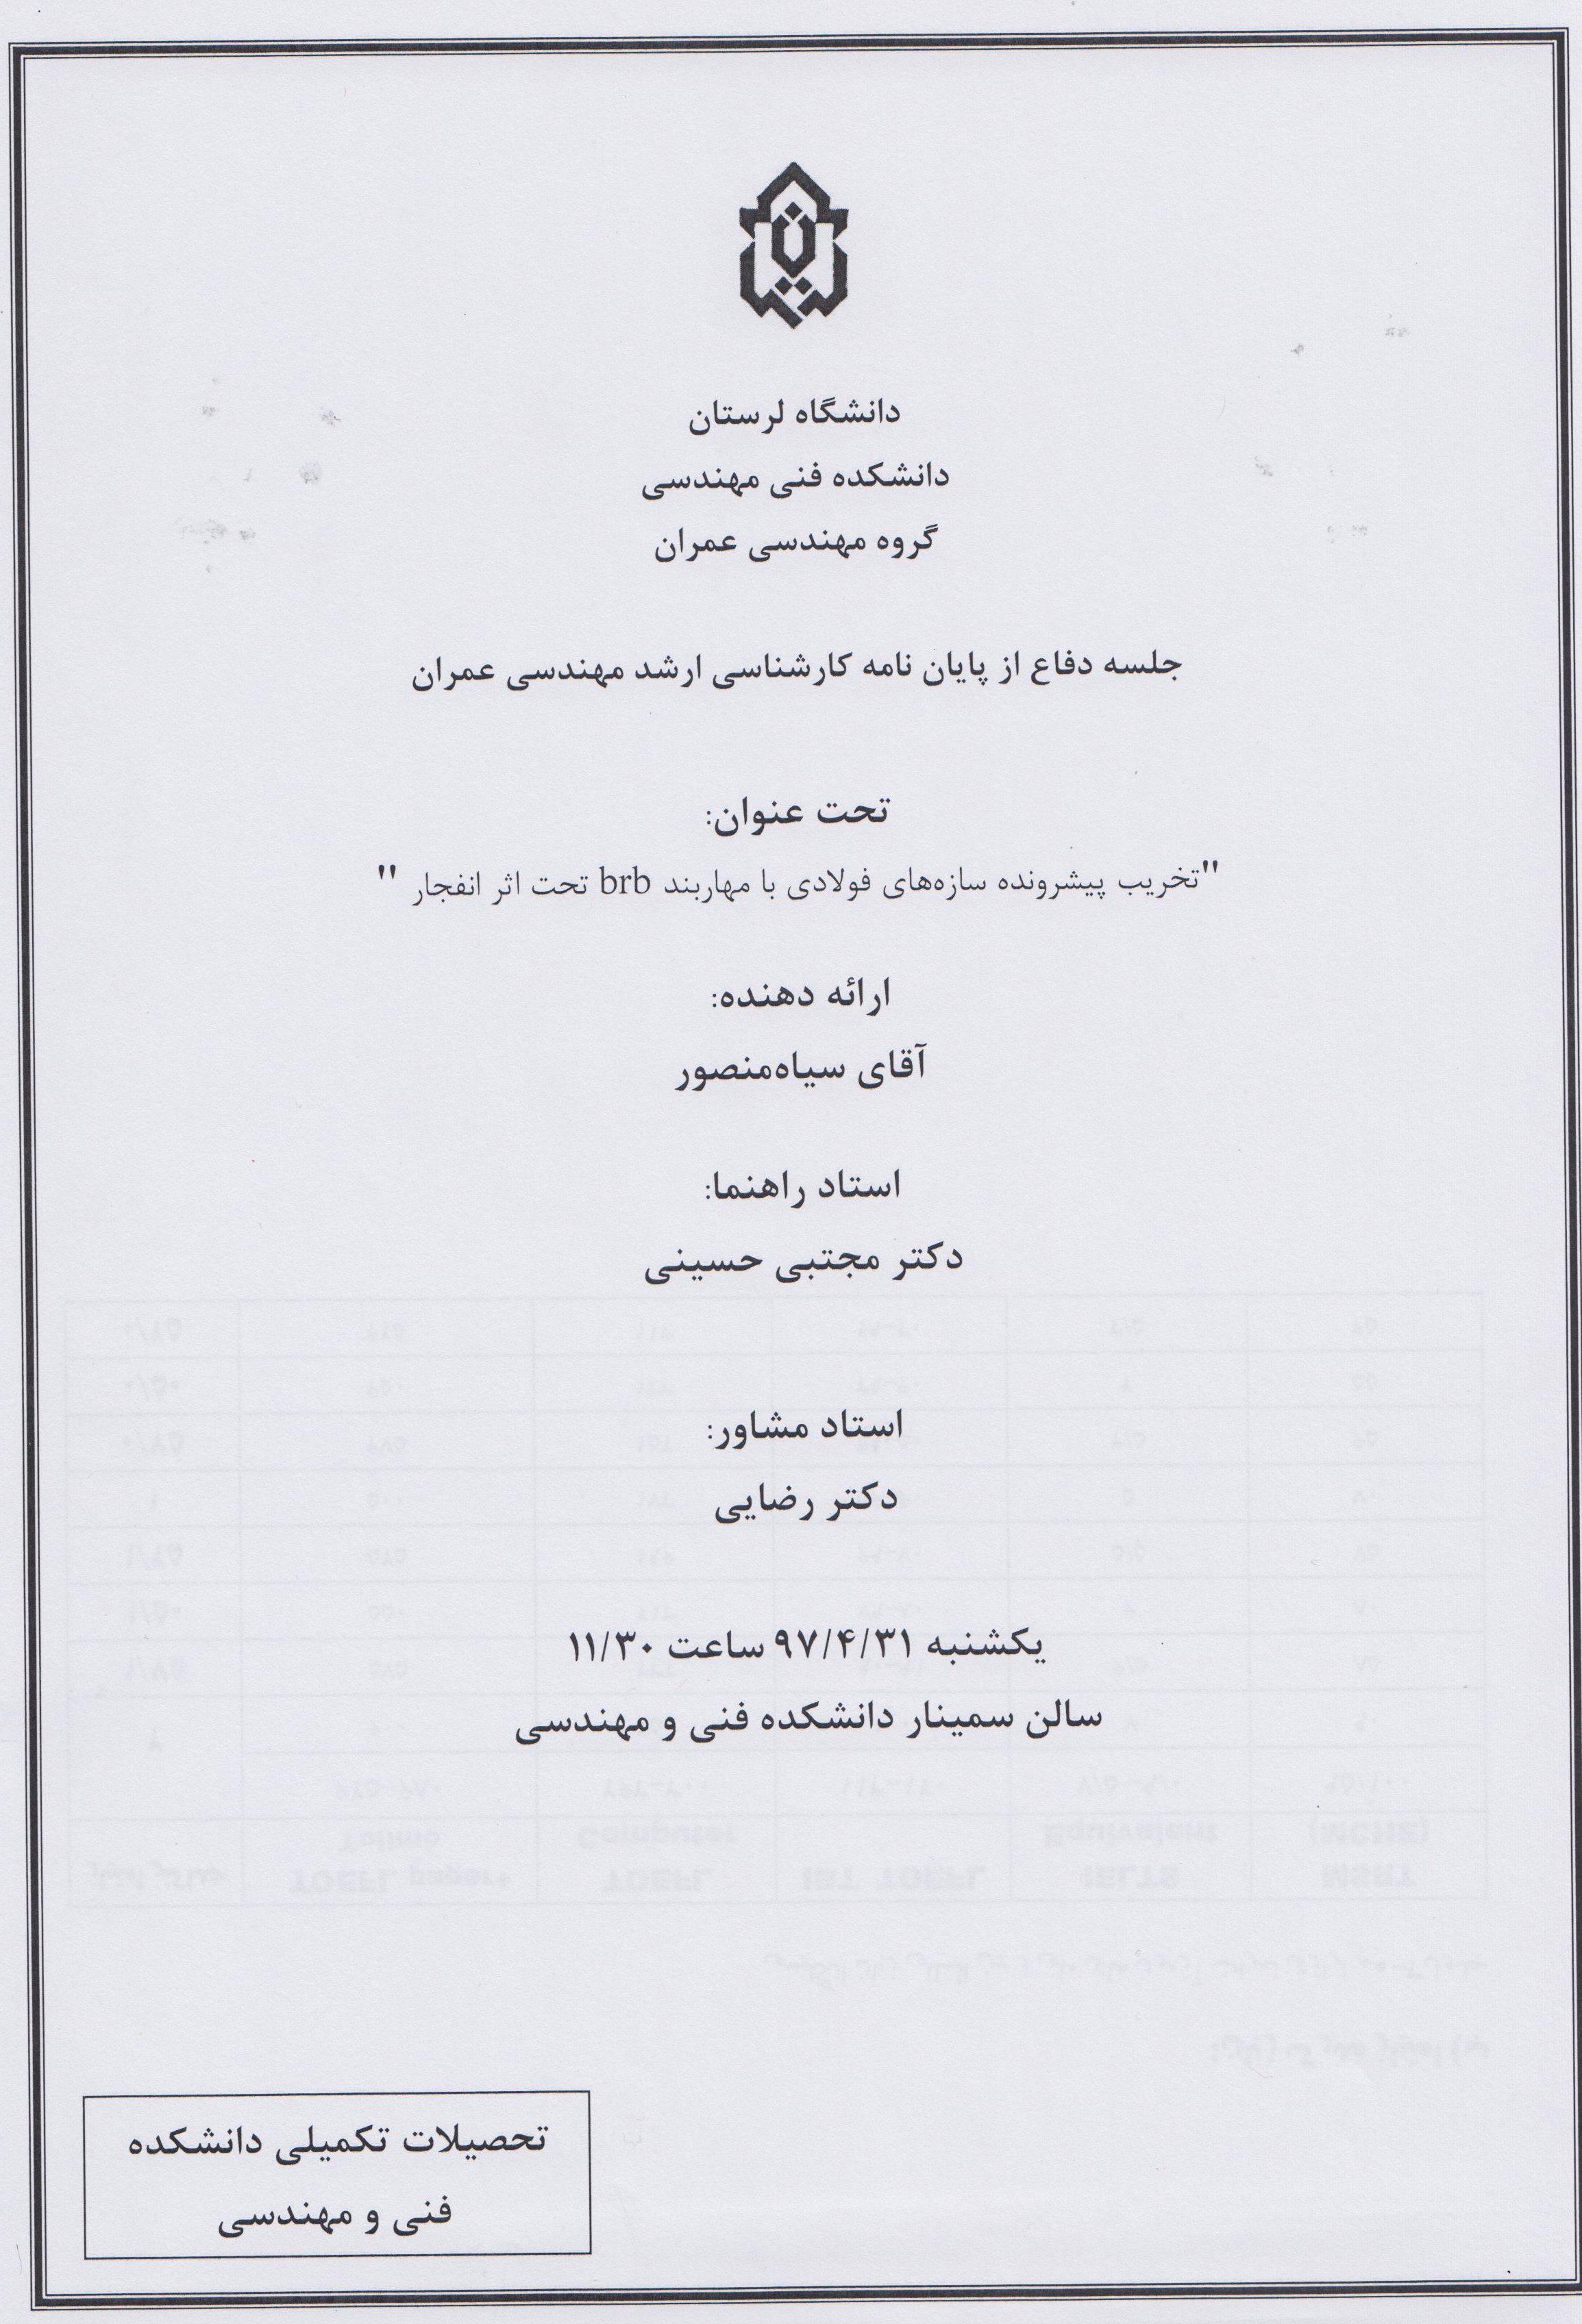 دانشگاه لرستان
دانشکده فنی مهندسی
گروه مهندسی عمران
جلسه دفاع از پایان نامه کارشناسی ارشد مهندسی عمران
تحت عنوان:
"تخریب پیشرونده سازه‌های فولادی با مهاربند brb تحت اثر انفجار "
ارائه دهنده:
آقای سیاه‌منصور
استاد راهنما:
دکتر مجتبی حسینی
استاد مشاور:
دکتر رضایی
یکشنبه ۹۷/۴/۳۱ ساعت ۱۱/۳۰
سالن سمینار دانشکده فنی و مهندسی
تحصیلات تکمیلی دانشکده
فنی و مهندسی